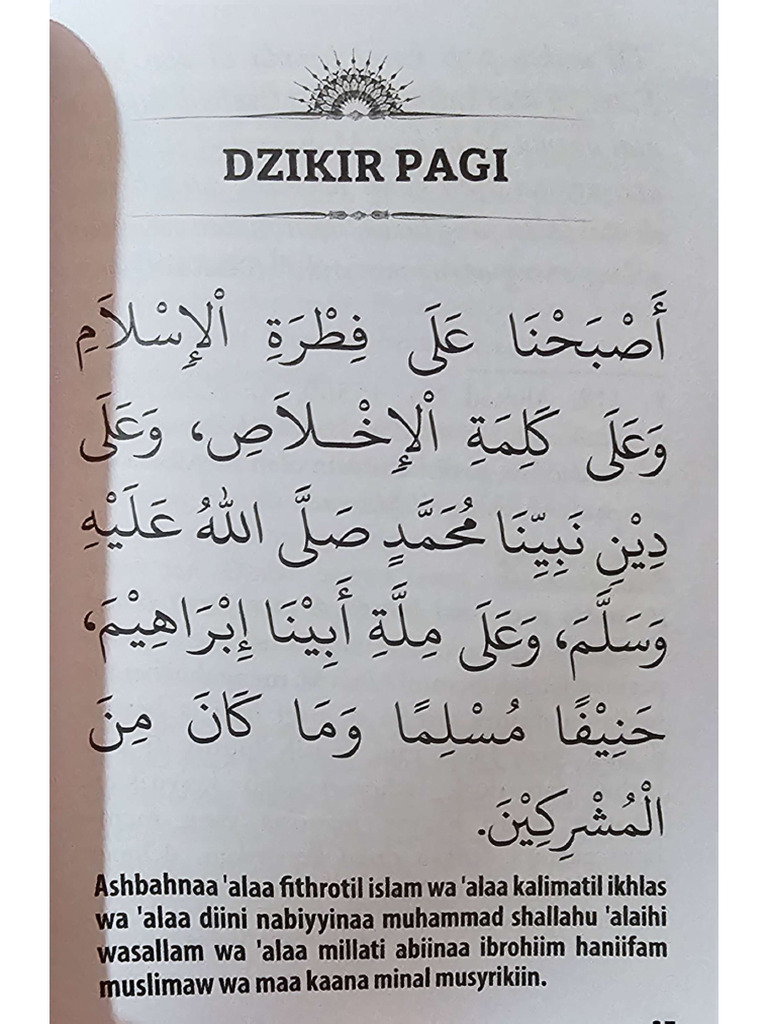 DZIKIR PAGI
أَصْبَحْنَا عَلَى فِطْرَةِ الْإِسْلَامِ
وَعَلَى كَلِمَةِ الْإِخْـلَاصِ، وَعَلَى
دِيْنِ نَبِيِّنَا مُحَمَّدٍ صَلَّى اللهُ عَلَيْهِ
وَسَلَّمَ، وَعَلَى مِلَّةِ أَبِيْنَا إِبْرَاهِيْمَ،
حَنِيْفًا مُسْلِمًا وَمَا كَانَ مِنَ
الْمُشْرِكِيْنَ.
Ashbahnaa 'alaa fithrotil islam wa 'alaa kalimatil ikhlas
wa 'alaa diini nabiyyinaa muhammad shallahu 'alaihi
wasallam wa 'alaa millati abiinaa ibrohiim haniifam
muslimaw wa maa kaana minal musyrikiin.